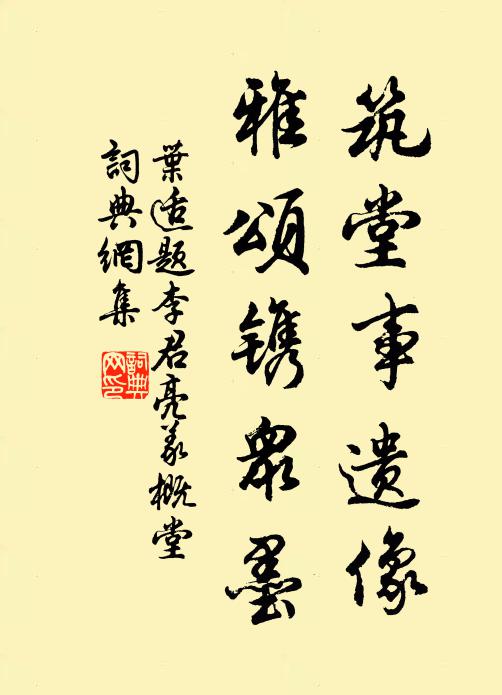 筑堂事遗像
雅頌镌眾墨
葉适题李君亮义概堂
詞典網集
詞典网印